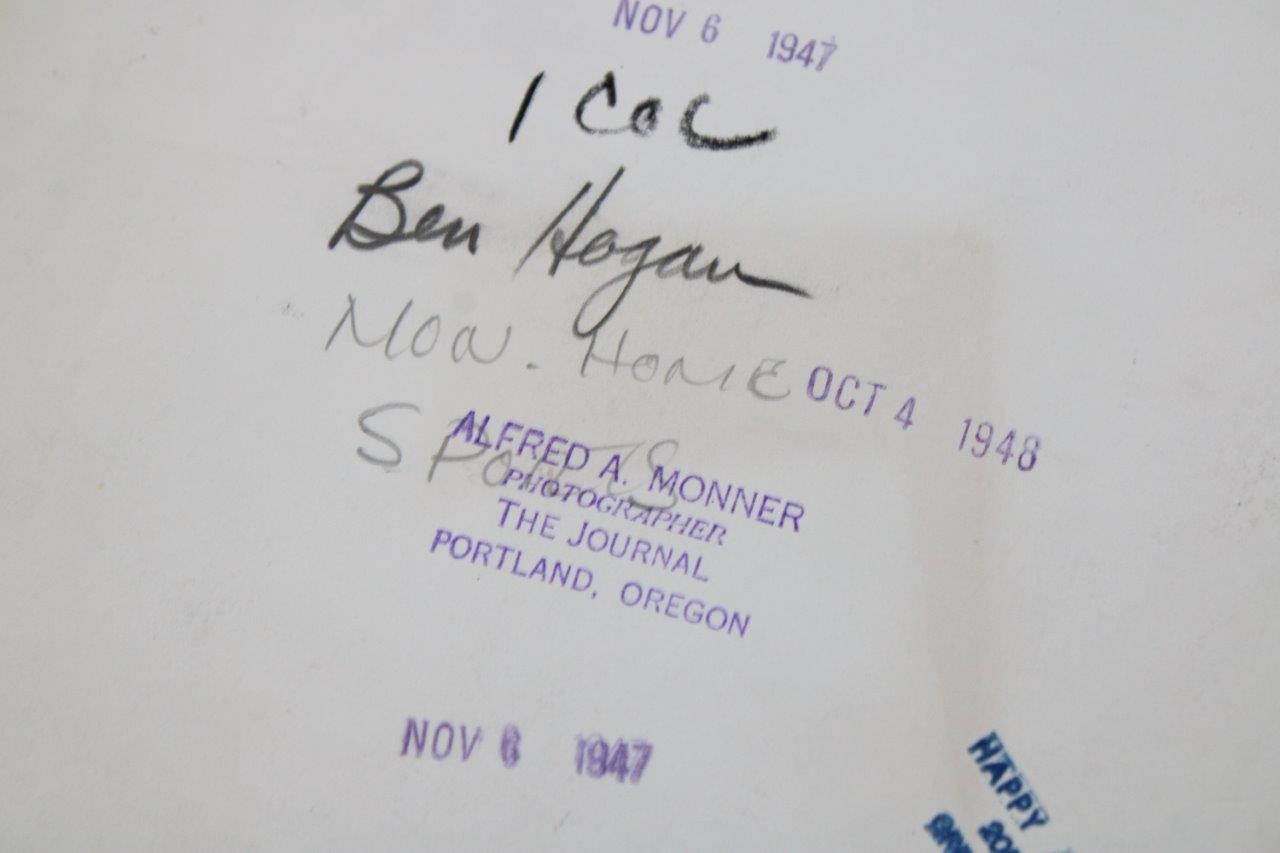 NOV 6 1947
1 COL
Ben Hogan
MON. HOME
OCT 4 1948
SPORTS
ALFRED A. MONNER
PHOTOGRAPHER
THE JOURNAL
PORTLAND, OREGON
NOV 6 1947
HAPPY